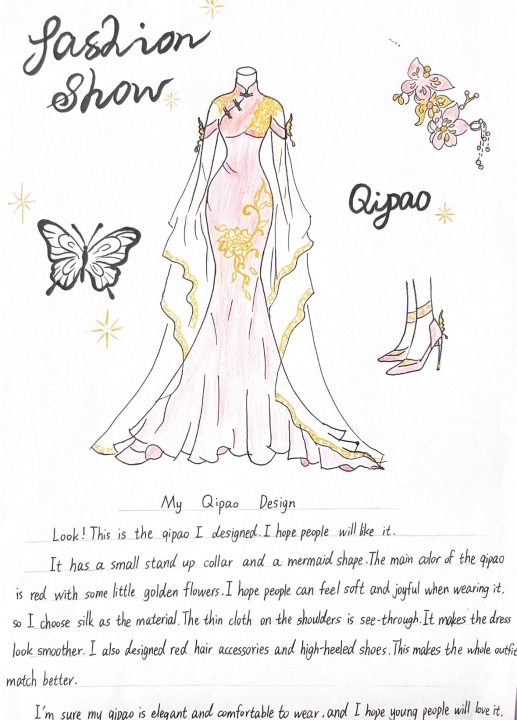 Fashion
Show
Qipao
My Qipao Design
Look! This is the qipao I designed. I hope people will like it.
It has a small stand up collar and a mermaid shape. The main color of the qipao
is red with some little golden flowers. I hope people can feel soft and joyful when wearing it,
so I choose silk as the material. The thin cloth on the shoulders is see-through. It makes the dress
look smoother. I also designed red hair accessories and high-heeled shoes. This makes the whole outfit
match better.
I'm sure my qipao is elegant and comfortable to wear, and I hope young people will love it.